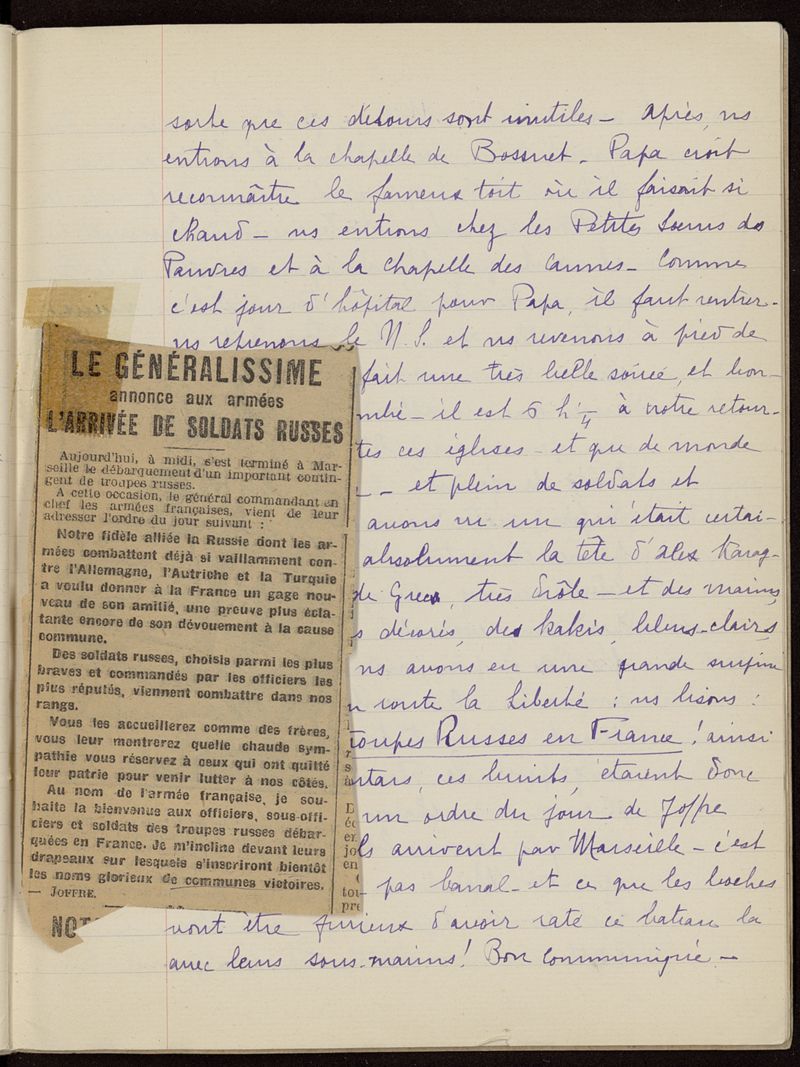 sorte que ces détours sont inutiles – Après, ns
entrons à la chapelle de Bossuet – Papa croit
reconnaître le fameux toit où il faisait si
chaud – ns entrons chez les Petites Soeurs des
Pauvres et à la chapelle des Carmes – Comme
c'est jour d'hôpital pour Papa, il faut rentrer –
ns reprenons le N. S. et ns revenons à pied de
fait une très belle soirée, et bon-
– il est 6 h ¼ à notre retour –
tes ces églises – et que de monde
– et plein de soldats et
avons vu un qui était certai-
absolument la tête d'alex Karag-
de Grece, très drôle – et des marins,
s décorés, des kakis, bleus-clairs
ns avons eu une grande surprise
la Liberté : ns lisons :
roupes Russes en France ! ainsi
ces bruits, étaient donc
un ordre du jour de Joffre
ls arrivent par Marseille – c'est
pas banal – et ce que les boches
vont être furieux d'avoir raté ce bateau là
avec leurs sous-marins ! Bon communiqué –
LE GÉNÉRALISSIME
annonce aux armées
L'ARRIVÉE DE SOLDATS RUSSES
Aujourd'hui, à midi, s'est terminé à Mar-
seille le débarquement d'un important contin-
gent de troupes russes.
A cette occasion, le général commandant en
chef les armées françaises, vient de leur
adresser l'ordre du jour suivant :
Notre fidèle alliée la Russie dont les ar-
mées combattent déjà si vaillamment con-
tre l'Allemagne, l'Autriche et la Turquie
a voulu donner à la France un gage nou-
veau de son amitié, une preuve plus écla-
tante encore de son dévouement à la cause
commune.
Des soldats russes, choisis parmi les plus
braves et commandés par les officiers les
plus réputés, viennent combattre dans nos
rangs.
Vous les accueillerez comme des frères,
vous leur montrerez quelle chaude sym-
pathie vous réservez à ceux qui ont quitté
leur patrie pour venir lutter à nos côtés.
Au nom de l'armée française, je sou-
haite la bienvenue aux officiers, sous-offi-
ciers et soldats des troupes russes débar-
quées en France. Je m'incline devant leurs
drapeaux sur lesquels s'inscriront bientôt
les noms glorieux de communes victoires.
— JOFFRE.
NOT